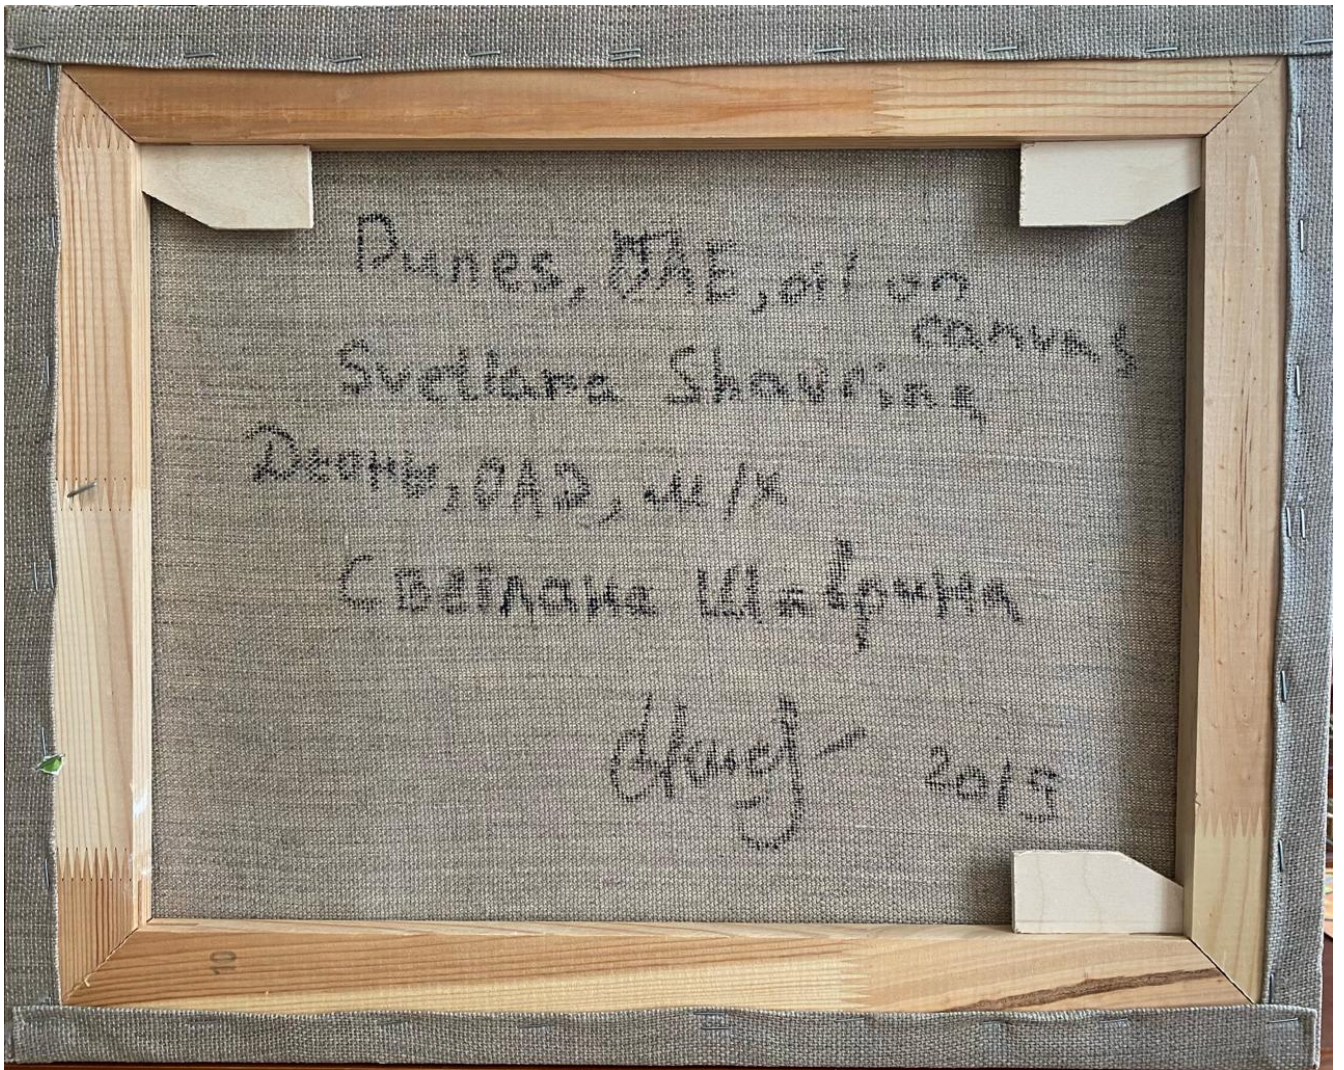 Dunes, UAE, oil on
canvas
Svetlana Shavrina
Дюны, ОАЭ, м/х
Светлана Шаврина
2019
10